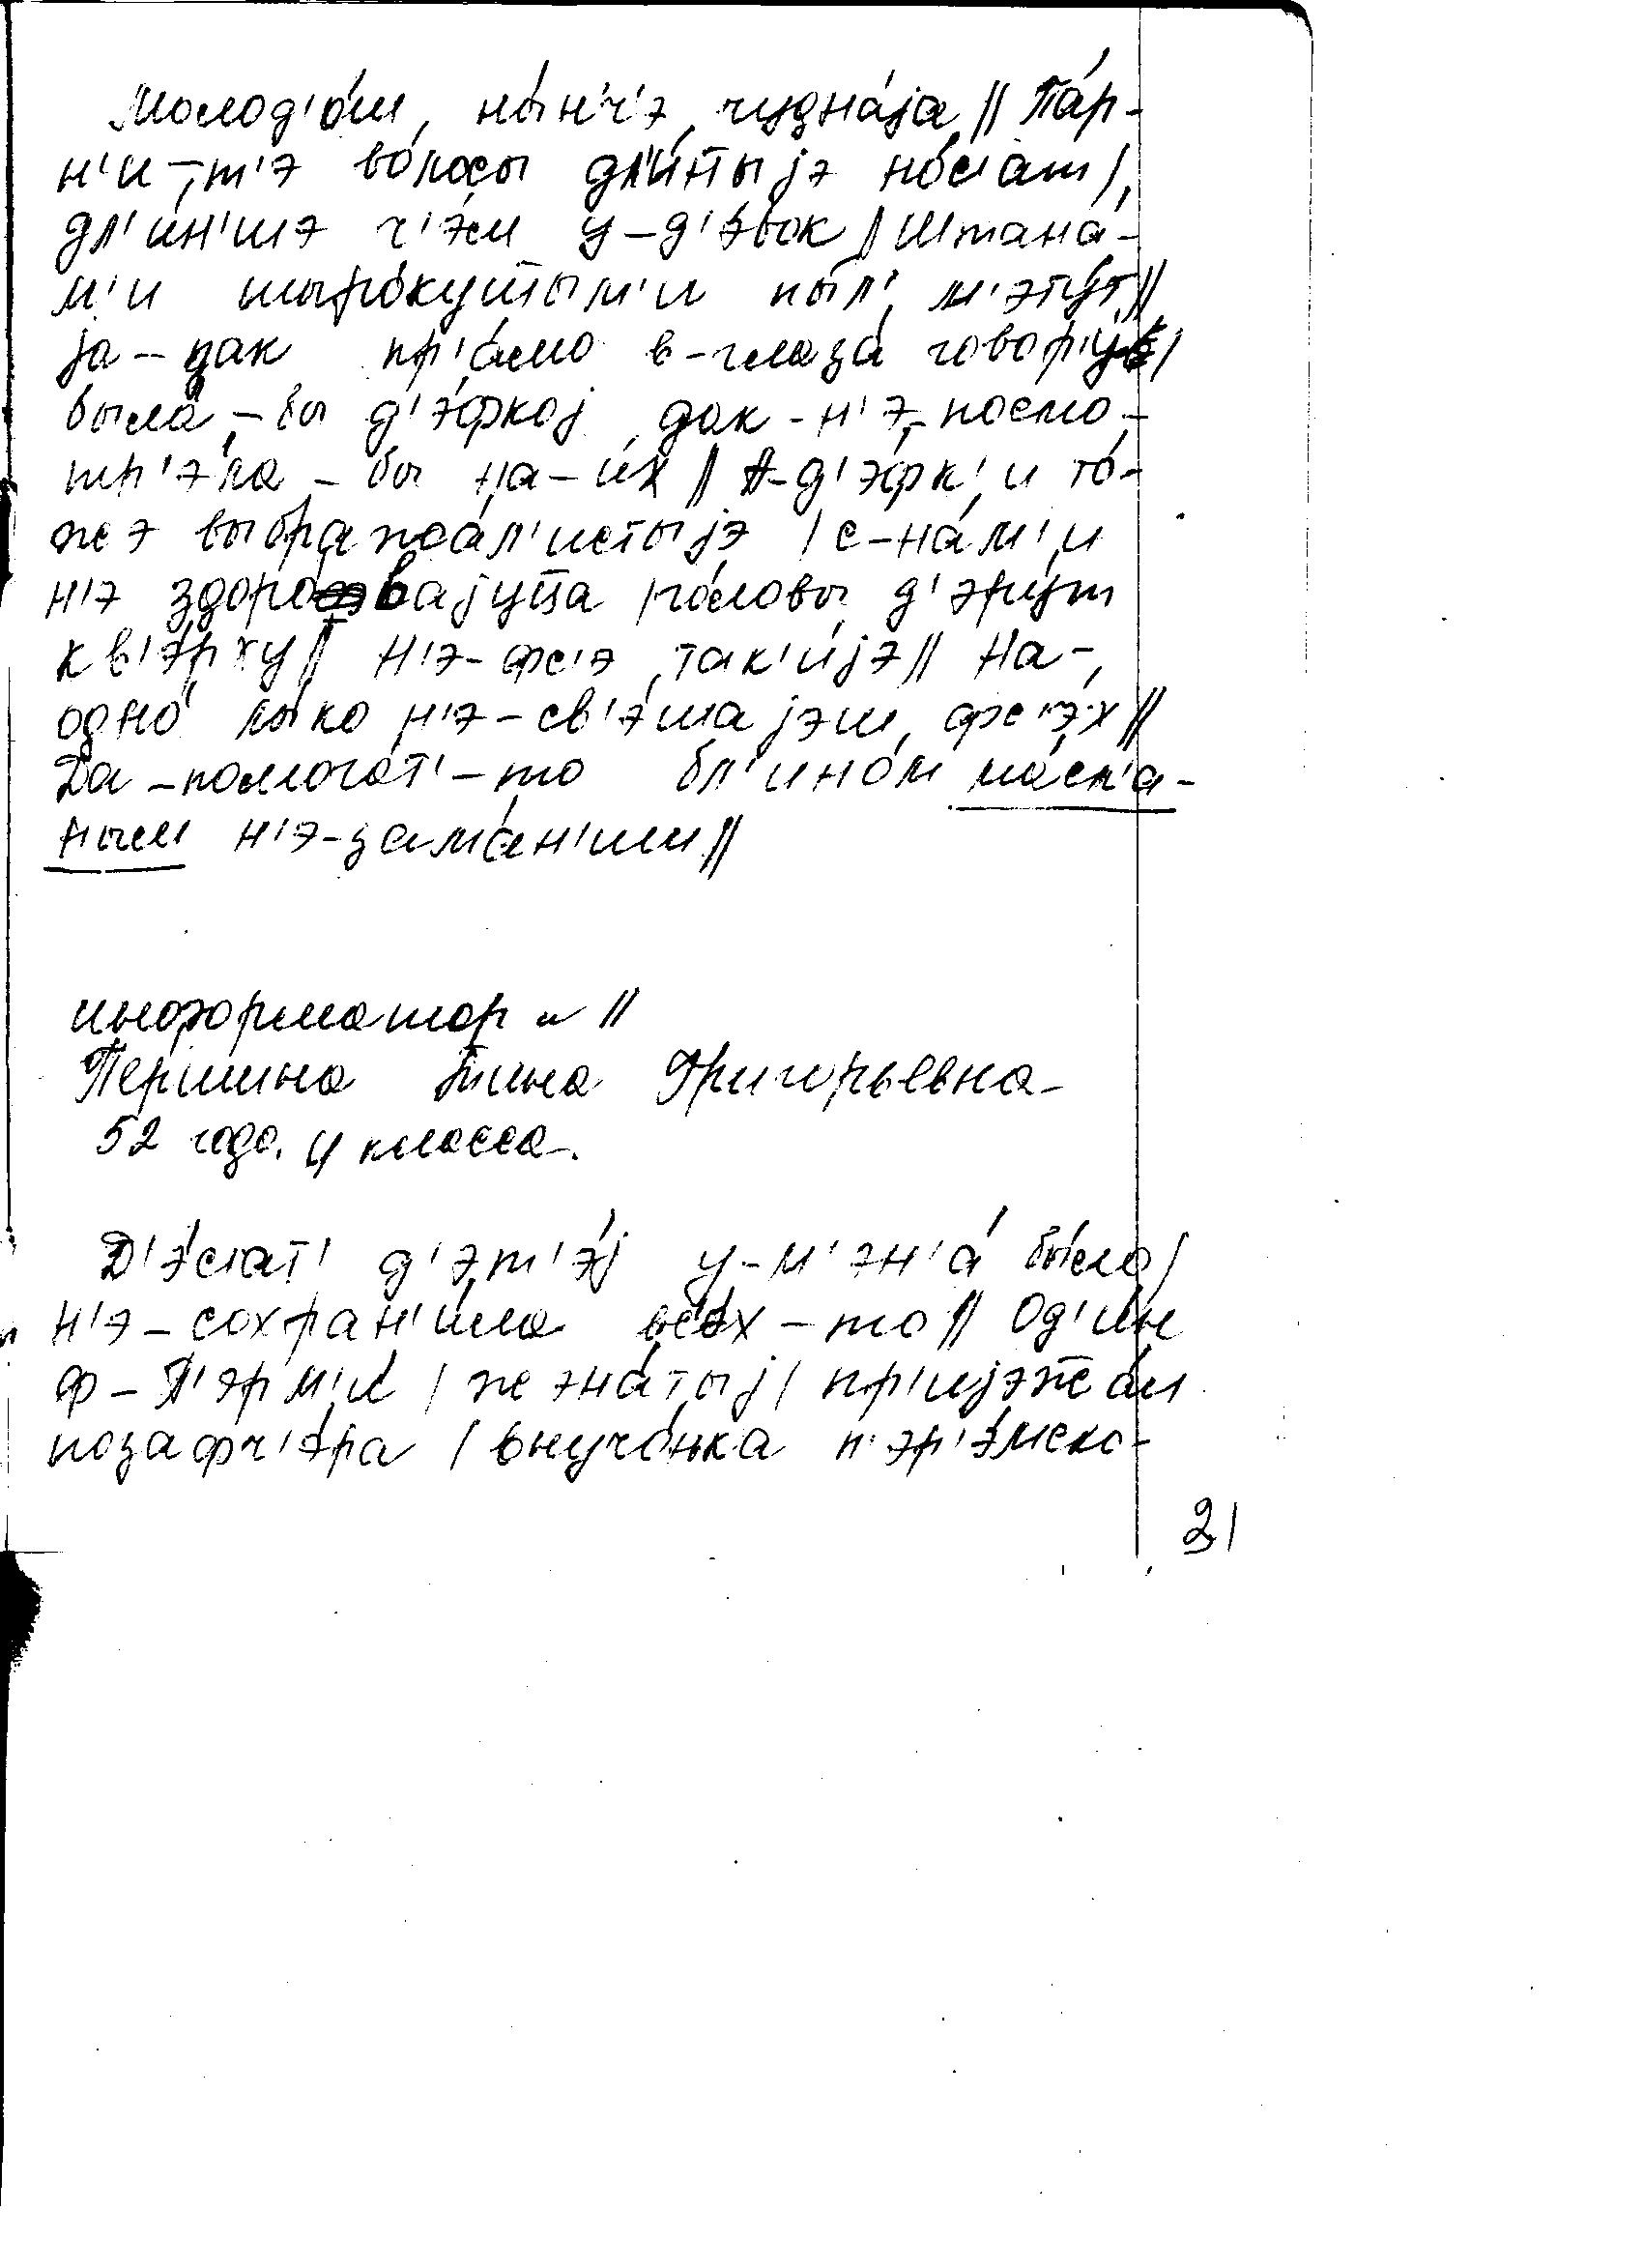 Молод'о́ш ны́н'ч'э чудна́jа // Па́р-
н'и-т'э во́лосы дл'и́н̅ыjэ но́с'ат /
дл'и́н'шэ ч'эм у-д'э́вок // Штана́-
м'и шыро́кушчым'и пыл' м'эту́т //
jа-дак пр'а́мо в-глаза́ говор'у́ /
была́-бы д'э́фкоj дак-н'э-посмо-
тр'э́ла-бы на-и́х // А-д'э́фк'и то́-
жэ выбража́л'истыjэ / с-на́м'и
н'э здоро́ваjуц̅а / го́ловы д'э́ржут
кв'э́рху // Н'э-фс'э так'и́jэ // На-
одно́ лы́ко н'э-св'э́шаjэш фс'э́х //
Да-помога́т'-то бл'ино́м ма́сл'а-
ным н'э-зама́н'иш //
информатор ~ //
Першина Нина Григорьевна-
52 года. 4 класса.
Д'э́с'ат' д'эт'э́j у-м'эн'а́ бы́ло /
н'э-сохран'и́ла всэх-то // Од'и́н
ф-П'эрм'и́ / жэна́тыj / пр'иjэж̅а́л
позафч'эра́ / внучо́нка п'эр'э́мско-
21